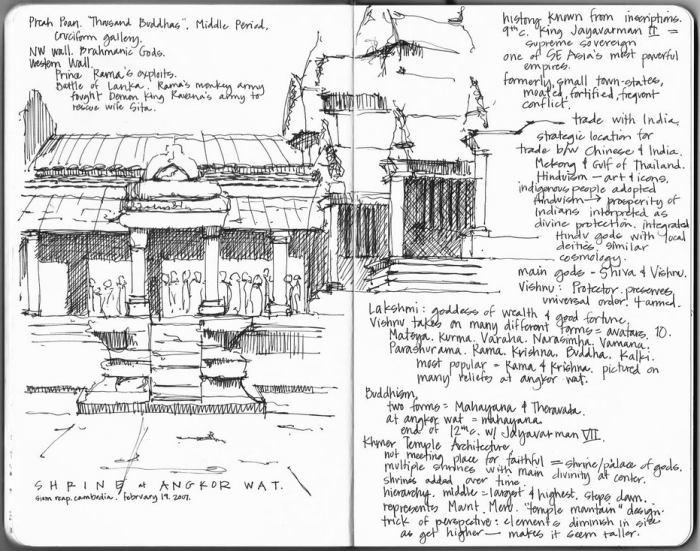 Preah Poan. "Thousand Buddhas". Middle Period.
Cruciform gallery.
NW wall. Brahmanic Gods.
Western Wall.
Prince Rama's exploits.
Battle of Lanka. Rama's monkey army
fought Demon King Ravana's army to
rescue wife Sita.
SHRINE at ANGKOR WAT.
siem reap. cambodia. february 19. 2007.
history known from inscriptions.
9th c. King Jayavarman II =
supreme sovereign
one of SE Asia's most powerful
empires.
formerly, small town-states,
moated, fortified, frequent
conflict.
trade with India,
strategic location for
trade b/w Chinese & India.
Mekong & Gulf of Thailand.
Hinduism — art & icons.
indigenous people adopted
Hinduism → prosperity of
Indians interpreted as
divine protection. integrated
Hindu gods with local
deities, similar
cosmology.
main gods - Shiva & Vishnu.
Vishnu: Protector. preserves
universal order. 4 armed.
Lakshmi: goddess of wealth & good fortune.
Vishnu takes on many different forms = avatars, 10.
Matsya. Kurma. Varaha. Narasimha. Vamana.
Parashurama. Rama. Krishna. Buddha. Kalki.
most popular = Rama & Krishna. pictured on
many reliefs at angkor wat.
Buddhism,
two forms = Mahayana & Theravada.
at angkor wat = mahayana
end of 12th c. w/ Jayavarman VII.
Khmer Temple Architecture,
not meeting place for faithful = shrine/palace of gods.
multiple shrines with main divinity at center.
shrines added over time.
hierarchy. middle = largest & highest, steps down.
represents Mount Meru. "temple mountain" design.
trick of perspective: elements diminish in size
as get higher — makes it seem taller.